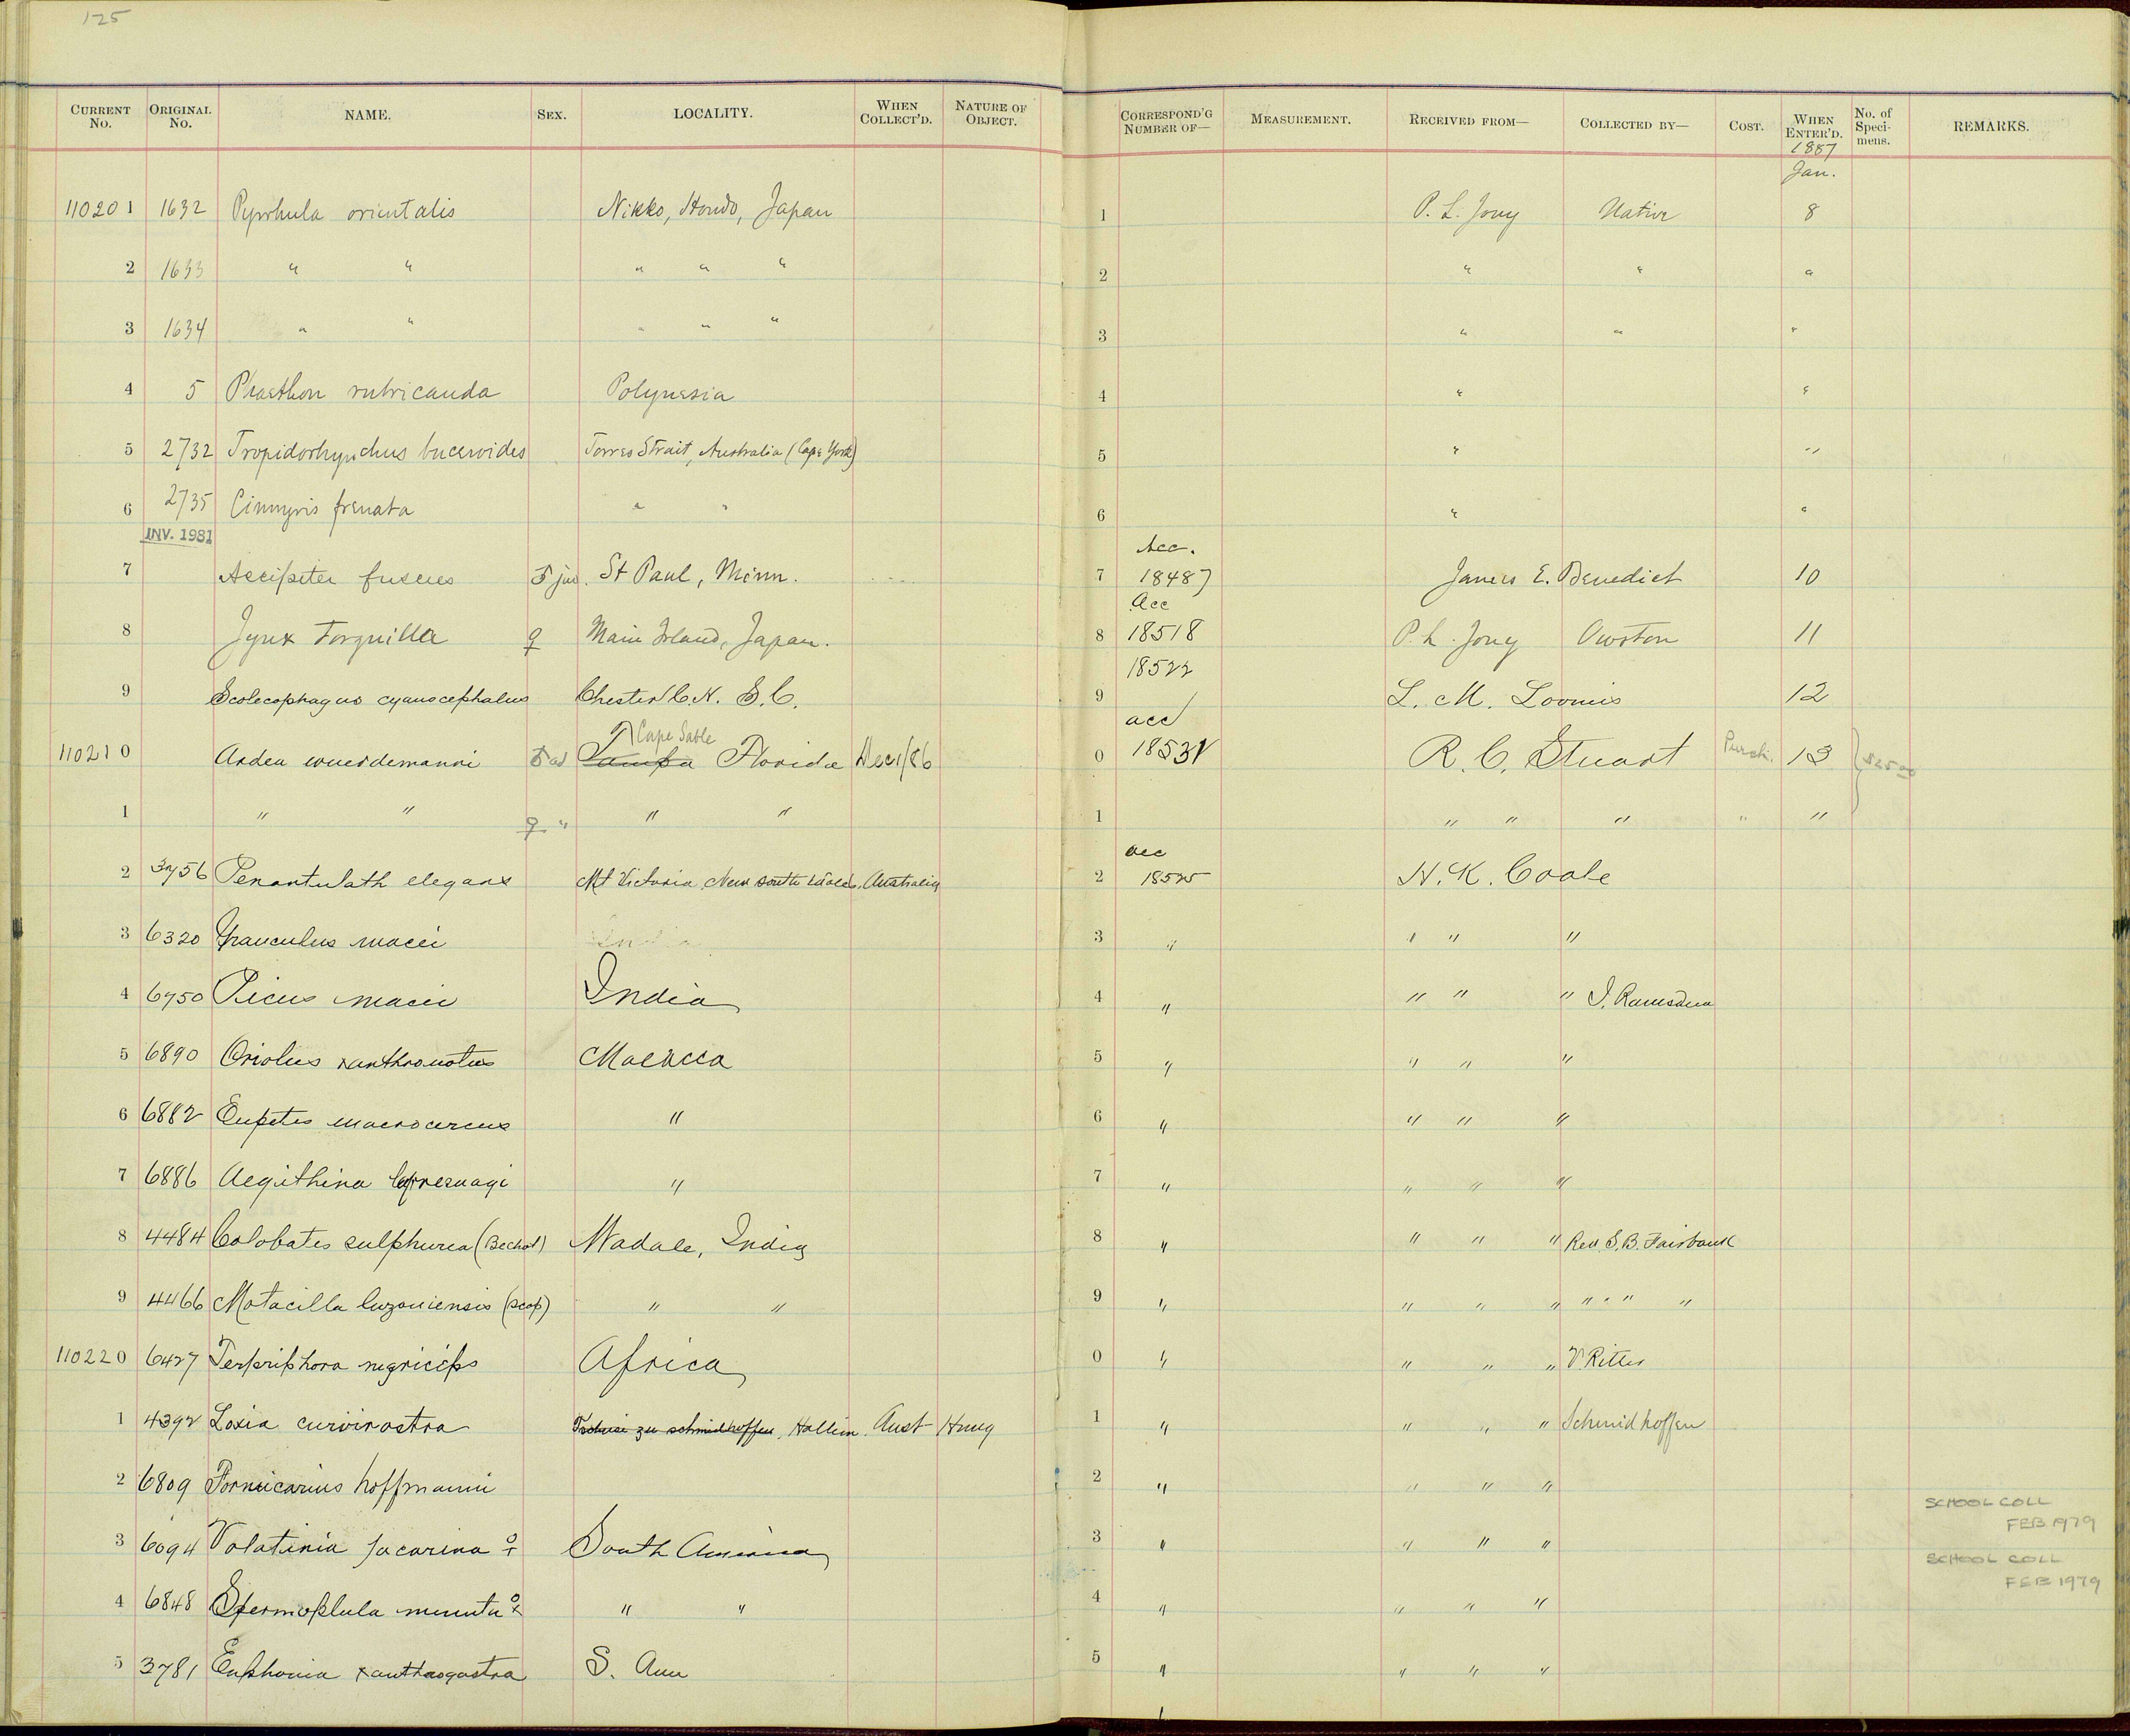 125
CURRENT No. ORIGINAL No. NAME. SEX. LOCALITY. WHEN COLLECT'D. NATURE OF OBJECT. CORRESPOND'G NUMBER OF— MEASUREMENT. RECEIVED FROM— COLLECTED BY— COST. WHEN ENTER'D. No. of Specimens. REMARKS.
1887
Jan.
110201 1632 Pyrrhula orientalis Nikko, Hondo, Japan 1 P. L. Jouy Native 8
2 1633 " " " " " 2 " " "
3 1634 " " " " " 3 " " "
4 5 Phaethon rubricauda Polynesia 4 " "
5 2732 Tropidorhynchus buceroides Torres Strait, Australia (Cape York) 5 " "
6 2735 Cinnyris frenata " " 6 " "
INV. 1981
Acc.
7 Accipiter fuscus ♂ juv. St Paul, Minn. 7 18487 James E. Benedict 10
Acc
8 Jynx torquilla ♀ Main Island, Japan. 8 18518 P. L. Jouy Owston 11
18522
9 Scolecophagus cyanocephalus Chester C.H. S.C. 9 L. M. Loomis 12
Cape Sable acc
110210 Ardea wuerdemanni ♂ ad Tampa Florida Dec1/86 0 18531 R. C. Stuart Purch. 13 $25.00
1 " " ♀ " " " 1 " " " " "
acc
2 3756 elegans Mt Victoria, New South Wales, Australia 2 18525 H. K. Coale
3 6320 Graucalus macei India 3 " " " "
4 6750 Picus macei India 4 " " " " J. Ramsden
5 6890 Oriolus xanthonotus Malacca 5 " " " "
6 6882 Eupetes macrocercus " 6 " " " "
7 6886 Aegithina " 7 " " " "
8 4484 Calobates sulphurea (Bechst) Wadale, India 8 " " " " Rev. S. B. Fairbank
9 4466 Motacilla luzoniensis (Scop) " " 9 " " " " " " " "
110220 6427 Terpsiphora nigriceps Africa 0 " " " " V Ritter
1 4392 Loxia curvirostra Tschusi zu schmidhoffen, Hallein Aust Hung 1 " " " " Schmidhoffen
2 6809 Formicarius hoffmanni 2 " " " "
SCHOOL COLL
FEB. 1979
3 6094 Volatinia jacarina ♀ South America 3 " " " "
SCHOOL COLL
FEB 1979
4 6848 Spermophila minuta ♀ " " 4 " " " "
5 3781 Euphonia xanthogastra S. Am 5 " " " "